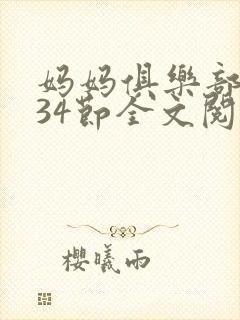 妈妈俱樂部
34節全文閱
櫻曦雨